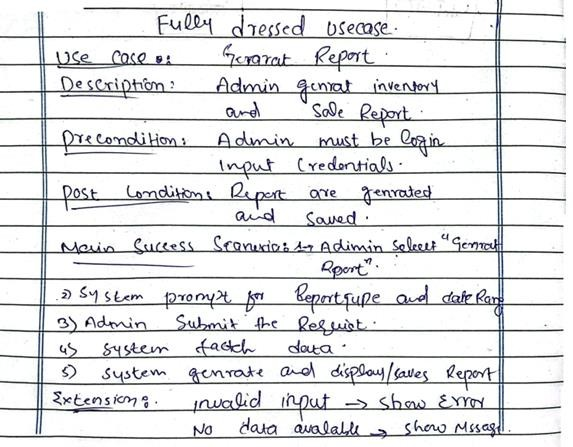 Fully dressed usecase.
Use case : Gerarat Report.
Description : Admin genrat inventory
and Sale Report.
Precondition : Admin must be login
Input Credentials.
Post Condition : Report are genrated
and Saved.
Main Success Scanerio : 1→ Adimin Select "Genrat
Rport".
2) System prompt for Report Type and date Rang
3) Admin Submit the Requist.
4) System fatch data.
5) System genrate and display/saves Report
Extension : invalid input → show Error
No data avalable → show Mssag